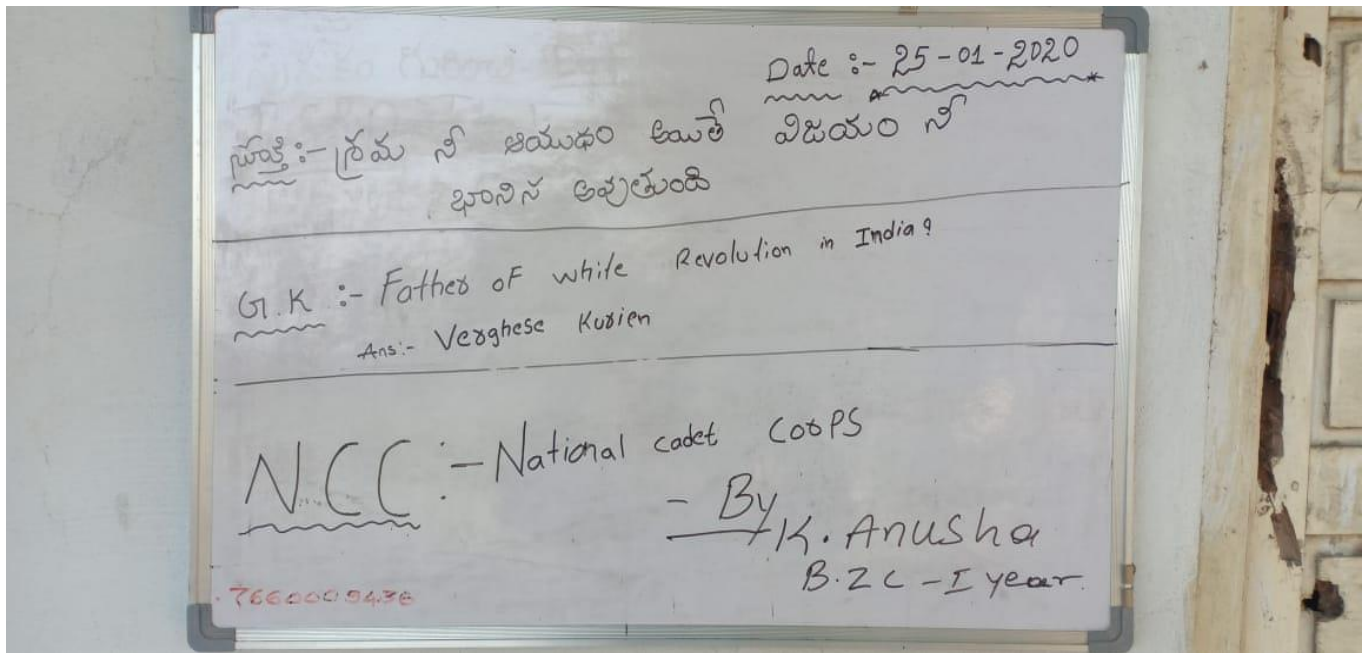 Date :- 25-01-2020
సూక్తి :- శ్రమ నీ ఆయుధం అయితే విజయం నీ
బానిస అవుతుంది
G.K :- Father of white Revolution in India?
Ans:- Verghese Kurien
N.C.C :- National cadet CorPS
- By
K. Anusha
B.Z.C - I year.